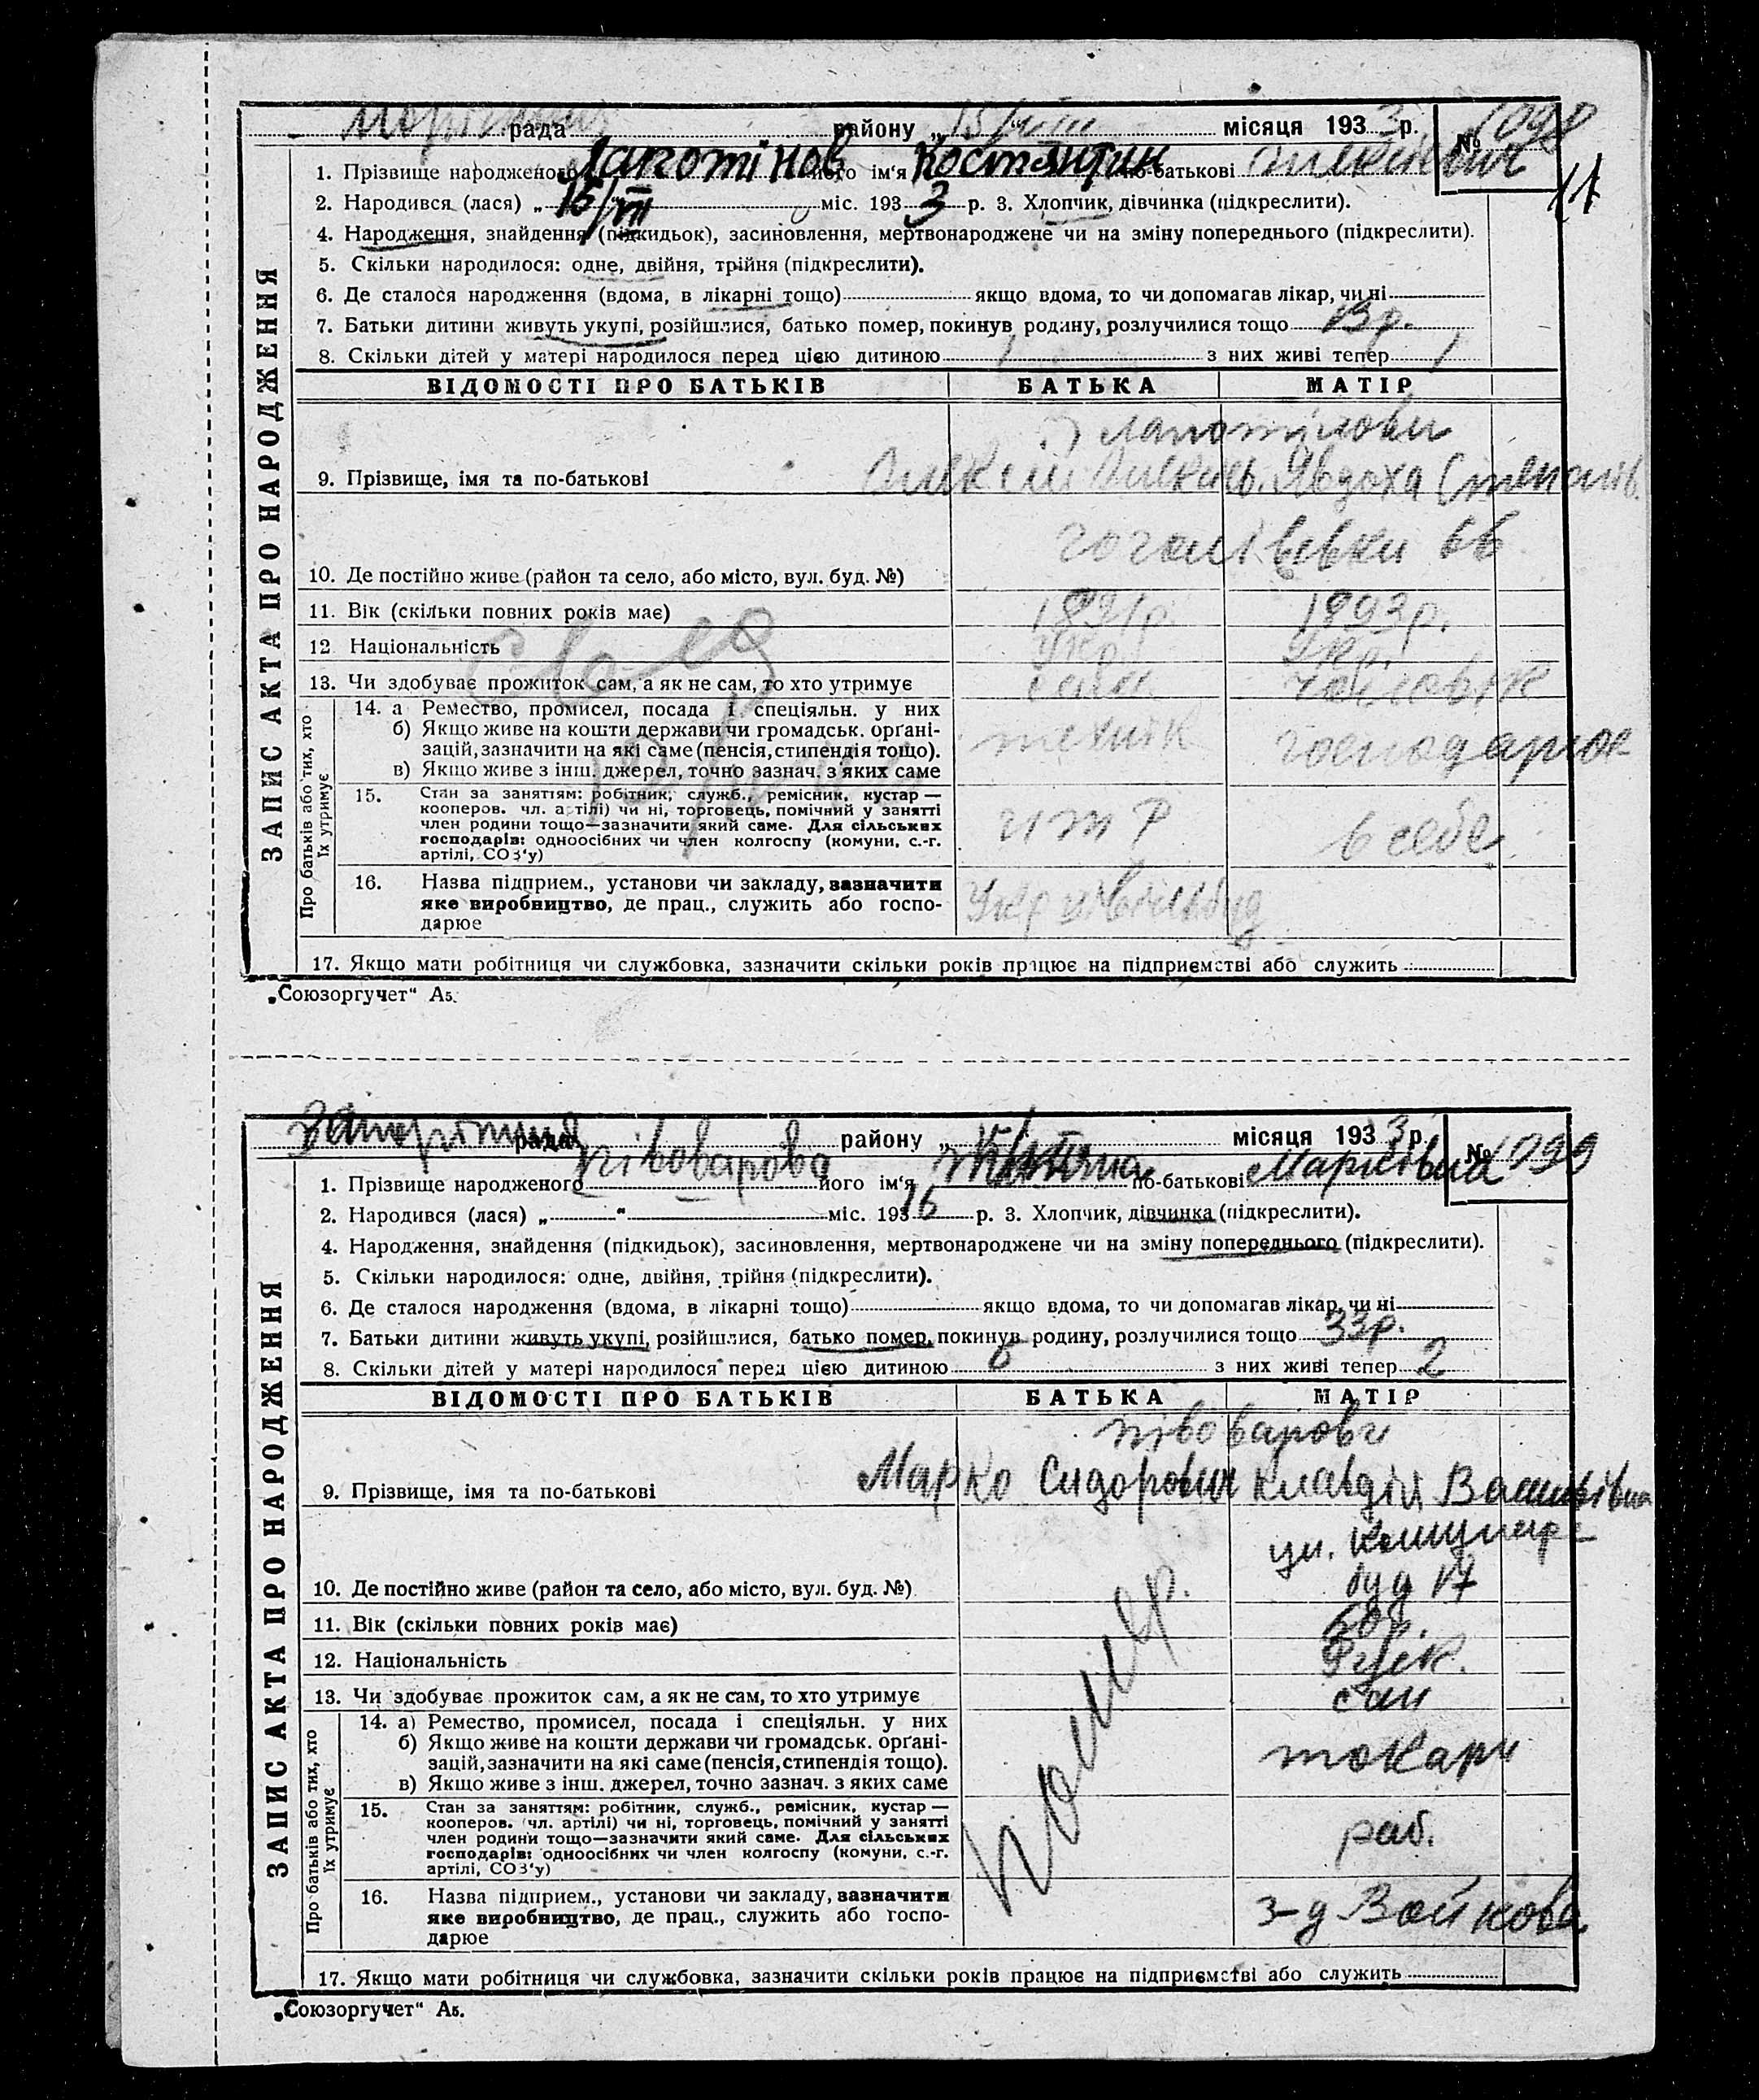 рада району „15/VIII“ місяця 1933 р. № 1098
1. Прізвище народженого Лапотінов його ім‘я Костянтин по-батькові
11
2. Народився (лася) „15/VIII міс. 1933 р. 3. Хлопчик, дівчинка (підкреслити).
4. Народження, знайдення (підкидьок), засиновлення, мертвонароджене чи на зміну попереднього (підкреслити).
5. Скільки народилося: одне, двійня, трійня (підкреслити).
6. Де сталося народження (вдома, в лікарні тощо) якщо вдома, то чи допомагав лікар, чи ні
7. Батьки дитини живуть укупі, розійшлися, батько помер, покинув родину, розлучилися тощо 13р.
8. Скільки дітей у матері народилося перед цією дитиною 1 з них живі тепер 1
ЗАПИС АКТА ПРО НАРОДЖЕННЯ
ВІДОМОСТІ ПРО БАТЬКІВ БАТЬКА МАТІР
9. Прізвище, імя та по-батькові Явдоха
66
10. Де постійно живе (район та село, або місто, вул. буд. №)
11. Вік (скільки повних років має) 1891р. 1893р.
12 Національність Укр. Укр.
13. Чи здобуває прожиток сам, а як не сам, то хто утримує сам чоловік
Про батьків або тих, хто їх утримує
14. а Ремество, промисел, посада і спеціяльн. у них
б) Якщо живе на кошти держави чи громадськ. орґані-
зацій, зазначити на які саме (пенсія, стипендія тощо). технік
в) Якщо живе з інш. джерел, точно зазнач. з яких саме
15. Стан за заняттям: робітник, служб., ремісник, кустар —
кооперов. чл. артілі) чи ні, торговець, помічний у занятті
член родини тощо—зазначити який саме. Для сільських
господарів: одноосібних чи член колгоспу (комуни, с.-г.
артілі, СОЗ‘у)
итр в себе
16. Назва підприєм., установи чи закладу, зазначити
яке виробництво, де прац., служить або госпо-
дарює
17. Якщо мати робітниця чи службовка, зазначити скільки років працює на підприємстві або служить
„Союзоргучет“ А5.
рада району „ місяця 1933 р. № 1099
1. Прізвище народженого Півоварова його ім‘я по-батькові Марківна
2. Народився (лася) „ “ міс. 193 16 р. 3. Хлопчик, дівчинка (підкреслити).
4. Народження, знайдення (підкидьок), засиновлення, мертвонароджене чи на зміну попереднього (підкреслити).
5. Скільки народилося: одне, двійня, трійня (підкреслити).
6. Де сталося народження (вдома, в лікарні тощо) якщо вдома, то чи допомагав лікар, чи ні
7. Батьки дитини живуть укупі, розійшлися, батько помер, покинув родину, розлучилися тощо 33р.
8. Скільки дітей у матері народилося перед цією дитиною 6 з них живі тепер 2
ЗАПИС АКТА ПРО НАРОДЖЕННЯ
ВІДОМОСТІ ПРО БАТЬКІВ БАТЬКА МАТІР
Півоварови
9. Прізвище, імя та по-батькові Марко Сидорович Клавдій Василівна
буд 17
10. Де постійно живе (район та село, або місто, вул. буд. №)
11. Вік (скільки повних років має)
12. Національність Руск.
13. Чи здобуває прожиток сам, а як не сам, то хто утримує сам
помер.
Про батьків або тих, хто їх утримує
14. а) Ремество, промисел, посада і спеціяльн. у них
б) Якщо живе на кошти держави чи громадськ. орґані-
зацій, зазначити на які саме (пенсія, стипендія тощо). токарь
в) Якщо живе з інш. джерел, точно зазнач. з яких саме
15. Стан за заняттям: робітник, служб., ремісник, кустар —
кооперов. чл. артілі) чи ні, торговець, помічний у занятті
член родини тощо—зазначити який саме. Для сільських
господарів: одноосібних чи член колгоспу (комуни, с.-г.
артілі, СОЗ‘у)
раб.
16. Назва підприєм., установи чи закладу, зазначити
яке виробництво, де прац., служить або госпо-
дарює
з-д Войкова
17. Якщо мати робітниця чи службовка, зазначити скільки років працює на підприємстві або служить
„Союзоргучет“ А5.